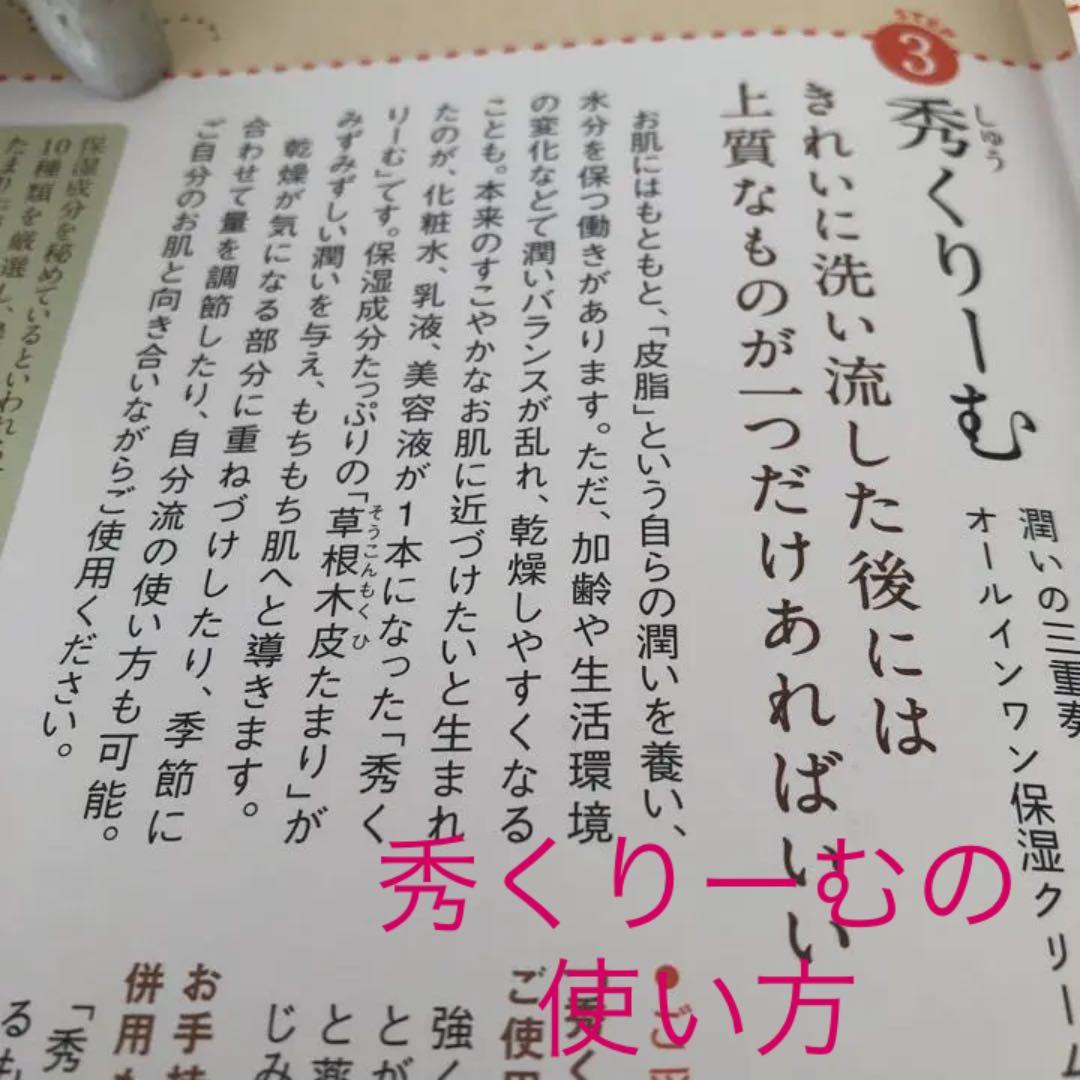 STEP
3
秀くりーむ
しゅう
潤いの三重奏
オールインワン保湿クリーム
きれいに洗い流した後には
上質なものが一つだけあればいい
お肌にはもともと、「皮脂」という自らの潤いを養い、
水分を保つ働きがあります。ただ、加齢や生活環境
の変化などで潤いバランスが乱れ、乾燥しやすくなる
ことも。本来のすこやかなお肌に近づけたいと生まれ
たのが、化粧水、乳液、美容液が1本になった「秀く
りーむ」です。保湿成分たっぷりの「草根木皮たまり」が
そうこんもくひ
みずみずしい潤いを与え、もちもち肌へと導きます。
乾燥が気になる部分に重ねづけしたり、季節に
合わせて量を調節したり、自分流の使い方も可能。
ご自分のお肌と向き合いながらご使用ください。
保湿成分を秘めているといわれ
10種類を厳選し
たまり
秀くりーむの
使い方
ご使用
強く
とが
と薬
じみ
お手持
併用も
「秀
るも